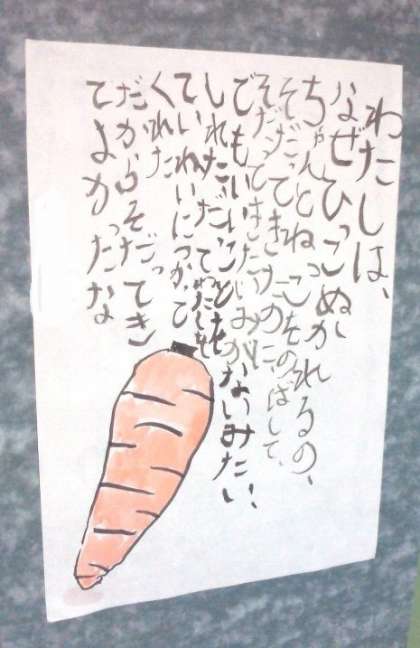 わたしは、
なぜひっこぬかれるの、
ちゃんとねっこをのばして、
そだってきたのに
そだってきたいみがないみたい、
でもいいこともを
しれた、だってわたしを
ていねいにつかって
くれた
だからそだってき
てよかったな